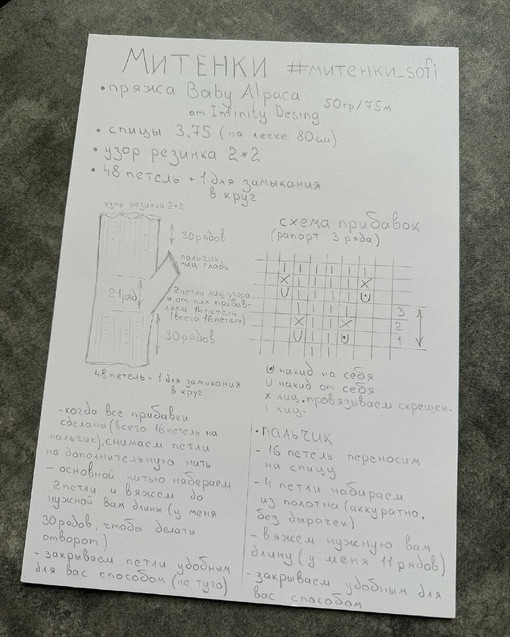 МИТЕНКИ #митенки_sofi
• пряжа Baby Alpaca 50гр/75м
от Infinity Desing
• спицы 3,75 (на леске 80см)
• узор резинка 2*2
• 48 петель + 1 для замыкания
в круг
узор резинка 2*2
30 рядов
пальчик
лиц. гладь
21 ряд
2 петли лиц. узора
и от них прибав-
ляем 14 петель
(всего 16 петель)
30 рядов
48 петель + 1 для замыкания
в круг
схема прибавок
(рапорт 3 ряда)
3
2
1
накид на себя
U накид от себя
x лиц. провязываем скрещен.
ı лиц.
- когда все прибавки
сделаны (всего 16 петель на
пальчик), снимаем петли
на дополнительную нить
- основной нитью набераем
2 петли и вяжем до
нужной вам длины (у меня
30 рядов, чтобы делать
отворот)
- закрываем петли удобным
для вас способом (не туго)
• пальчик
- 16 петель переносим
на спицу
- 4 петли набираем
из полотна (аккуратно.
без дырочек)
- вяжем нужную вам
длину (у меня 11 рядов)
- закрываем удобным для
вас способом